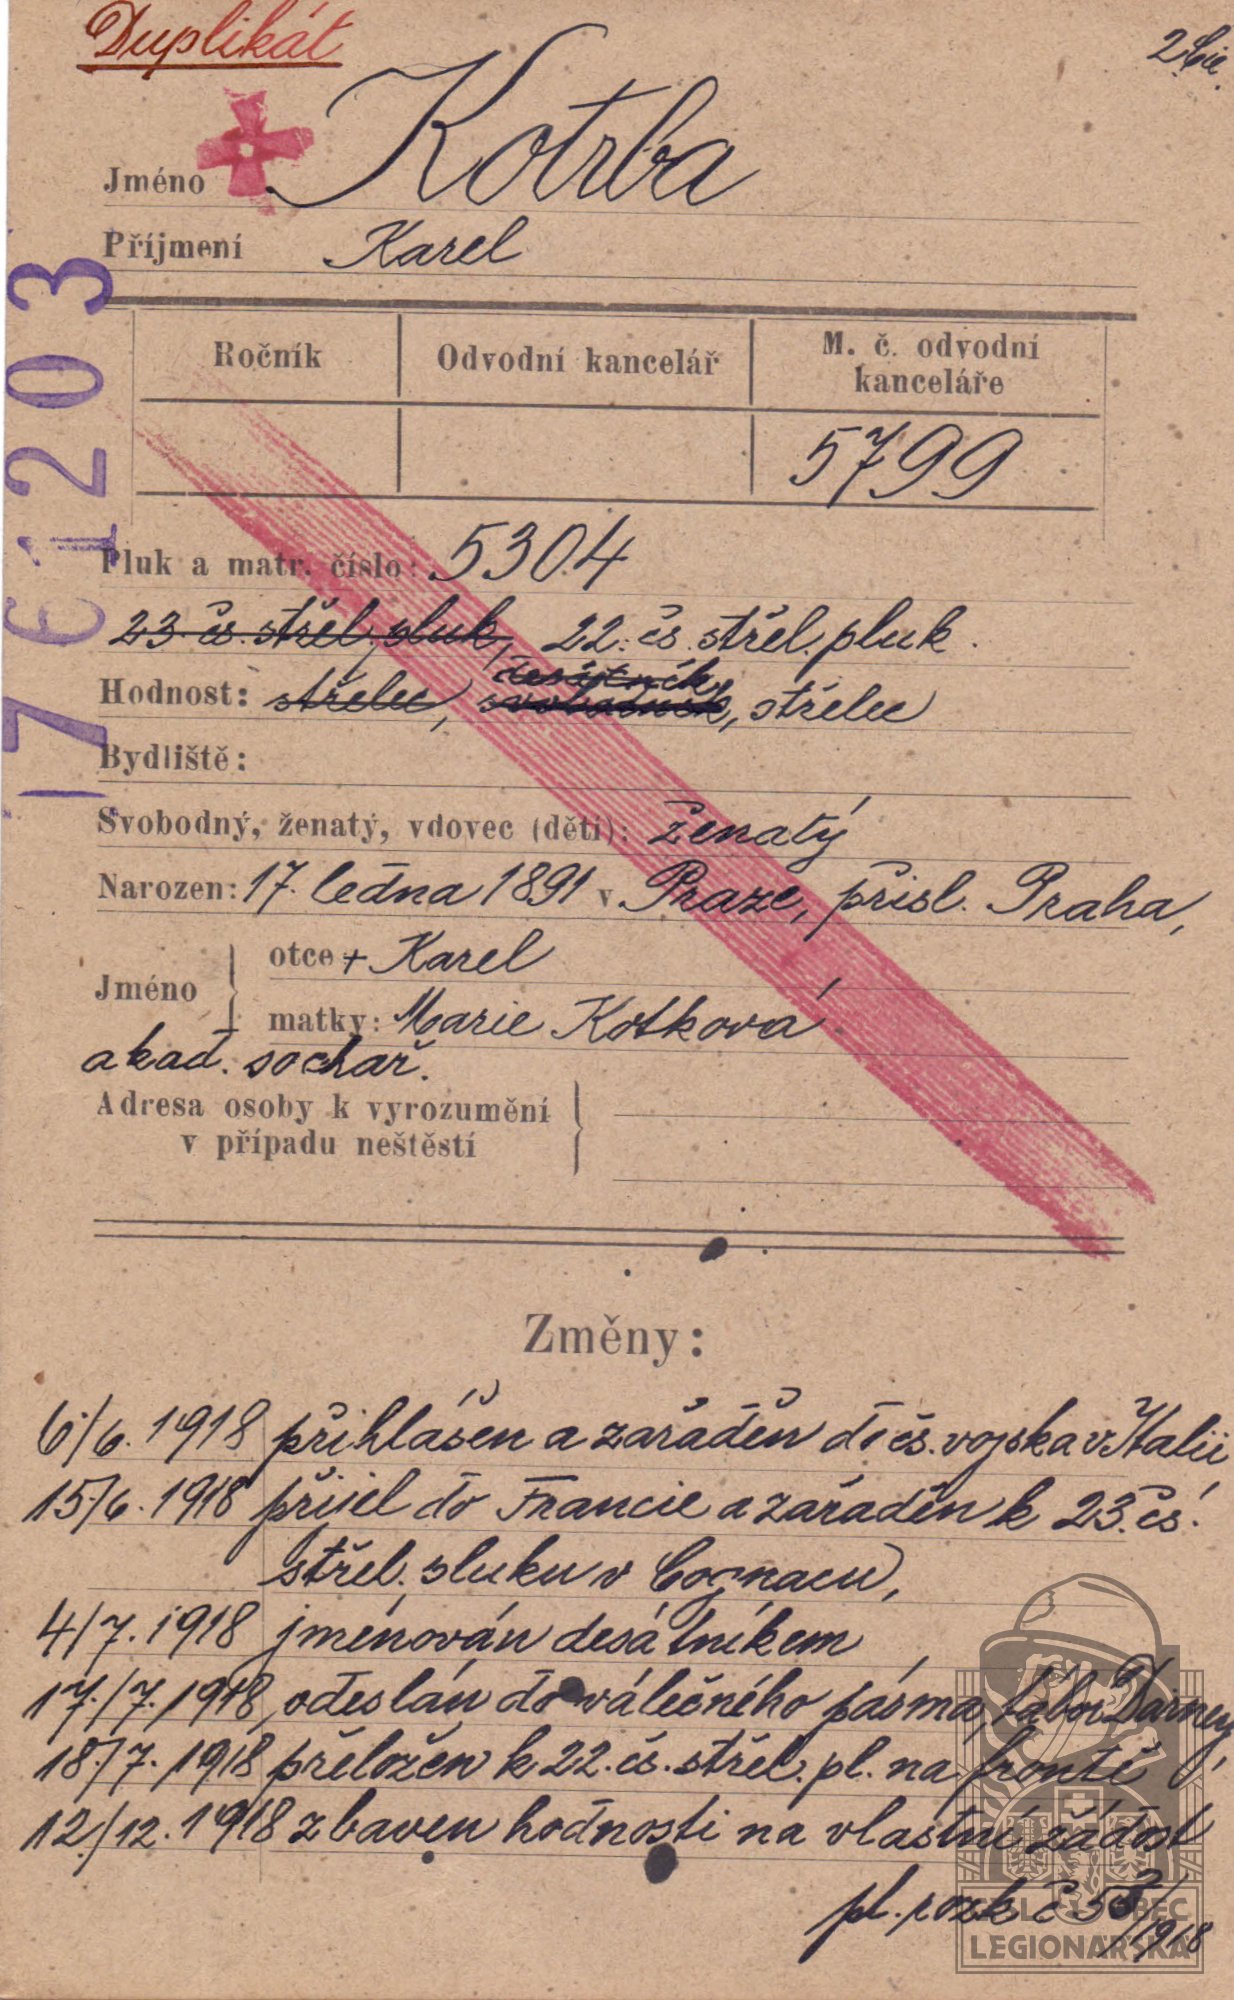 Duplikát
2. Cie.
Jméno Kotrba
Příjmení Karel
Ročník Odvodní kancelář M. č. odvodní kanceláře
5799
Pluk a matr. číslo: 5304
23. čs. střel. pluk, 22. čs. střel. pluk.
desátník
Hodnost: střelec, svobodník, střelec
Bydliště:
Svobodný, ženatý, vdovec (děti): ženatý
Narozen: 17. ledna 1891 v Praze, přísl. Praha,
Jméno otce + Karel
matky: Marie Kotková
akad. sochař.
Adresa osoby k vyrozumění
v případu neštěstí
Změny:
6/6. 1918 přihlášen a zařáděn do čs. vojska v Italii
15/6. 1918 přijel do Francie a zařáděn k 23. čs.
střel. pluku v Cognacu,
4/7. 1918 jmenován desátníkem
17./7. 1918, odeslán do válečného pásma, tábor Darney,
18./7. 1918 přeložen k 22. čs. střel. pl. na frontě
12./12. 1918 zbaven hodnosti na vlastní žádost
pl. rozk č 53/1918
OBEC
LEGIONÁŘSKÁ